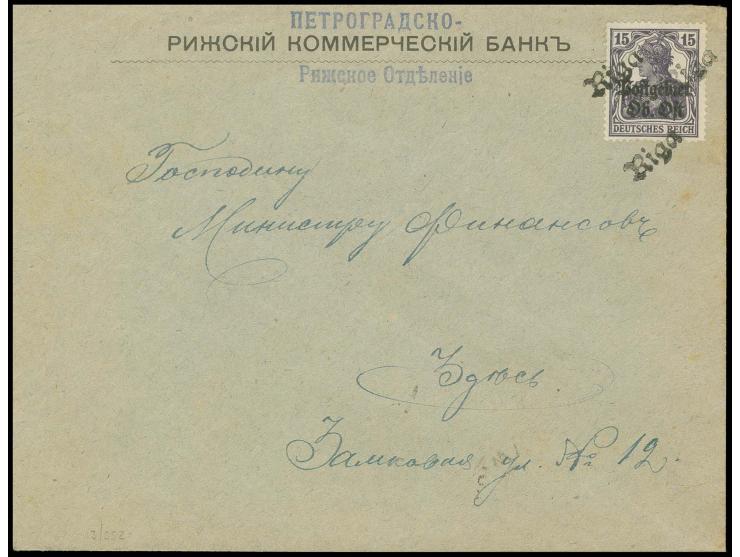 ПЕТРОГРАДСКО-
РИЖСКІЙ КОММЕРЧЕСКІЙ БАНКЪ
Рижское Отдѣленіе
15 15
Postgebiet
Ob. Ost
DEUTSCHES REICH
Riga
Riga
Riga
Господину
Министру Финансовъ
Здѣсь.
Замковая ул. № 12.